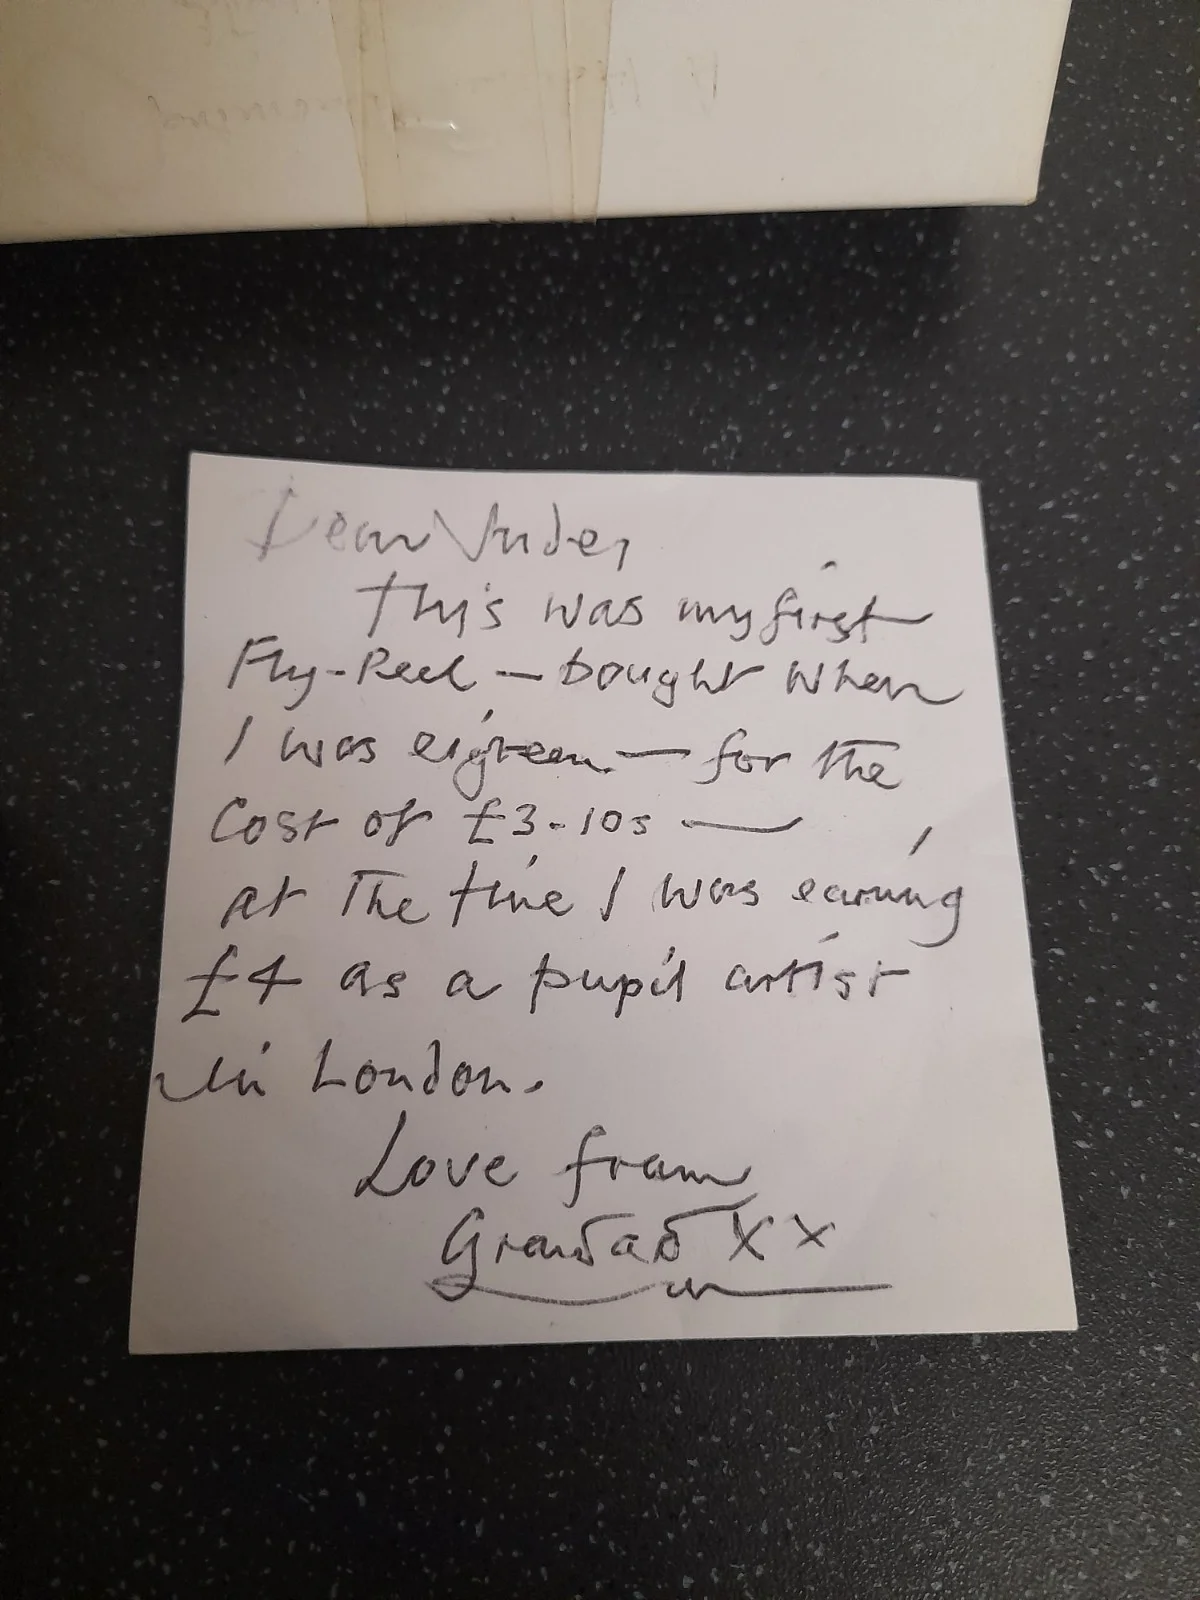 Dear Jude,
This was my first
Fly-Reel — bought when
I was eigteen — for the
Cost of £3-10s —
at the time I was earning
£4 as a pupil artist
in London.
Love from
Grandad XX